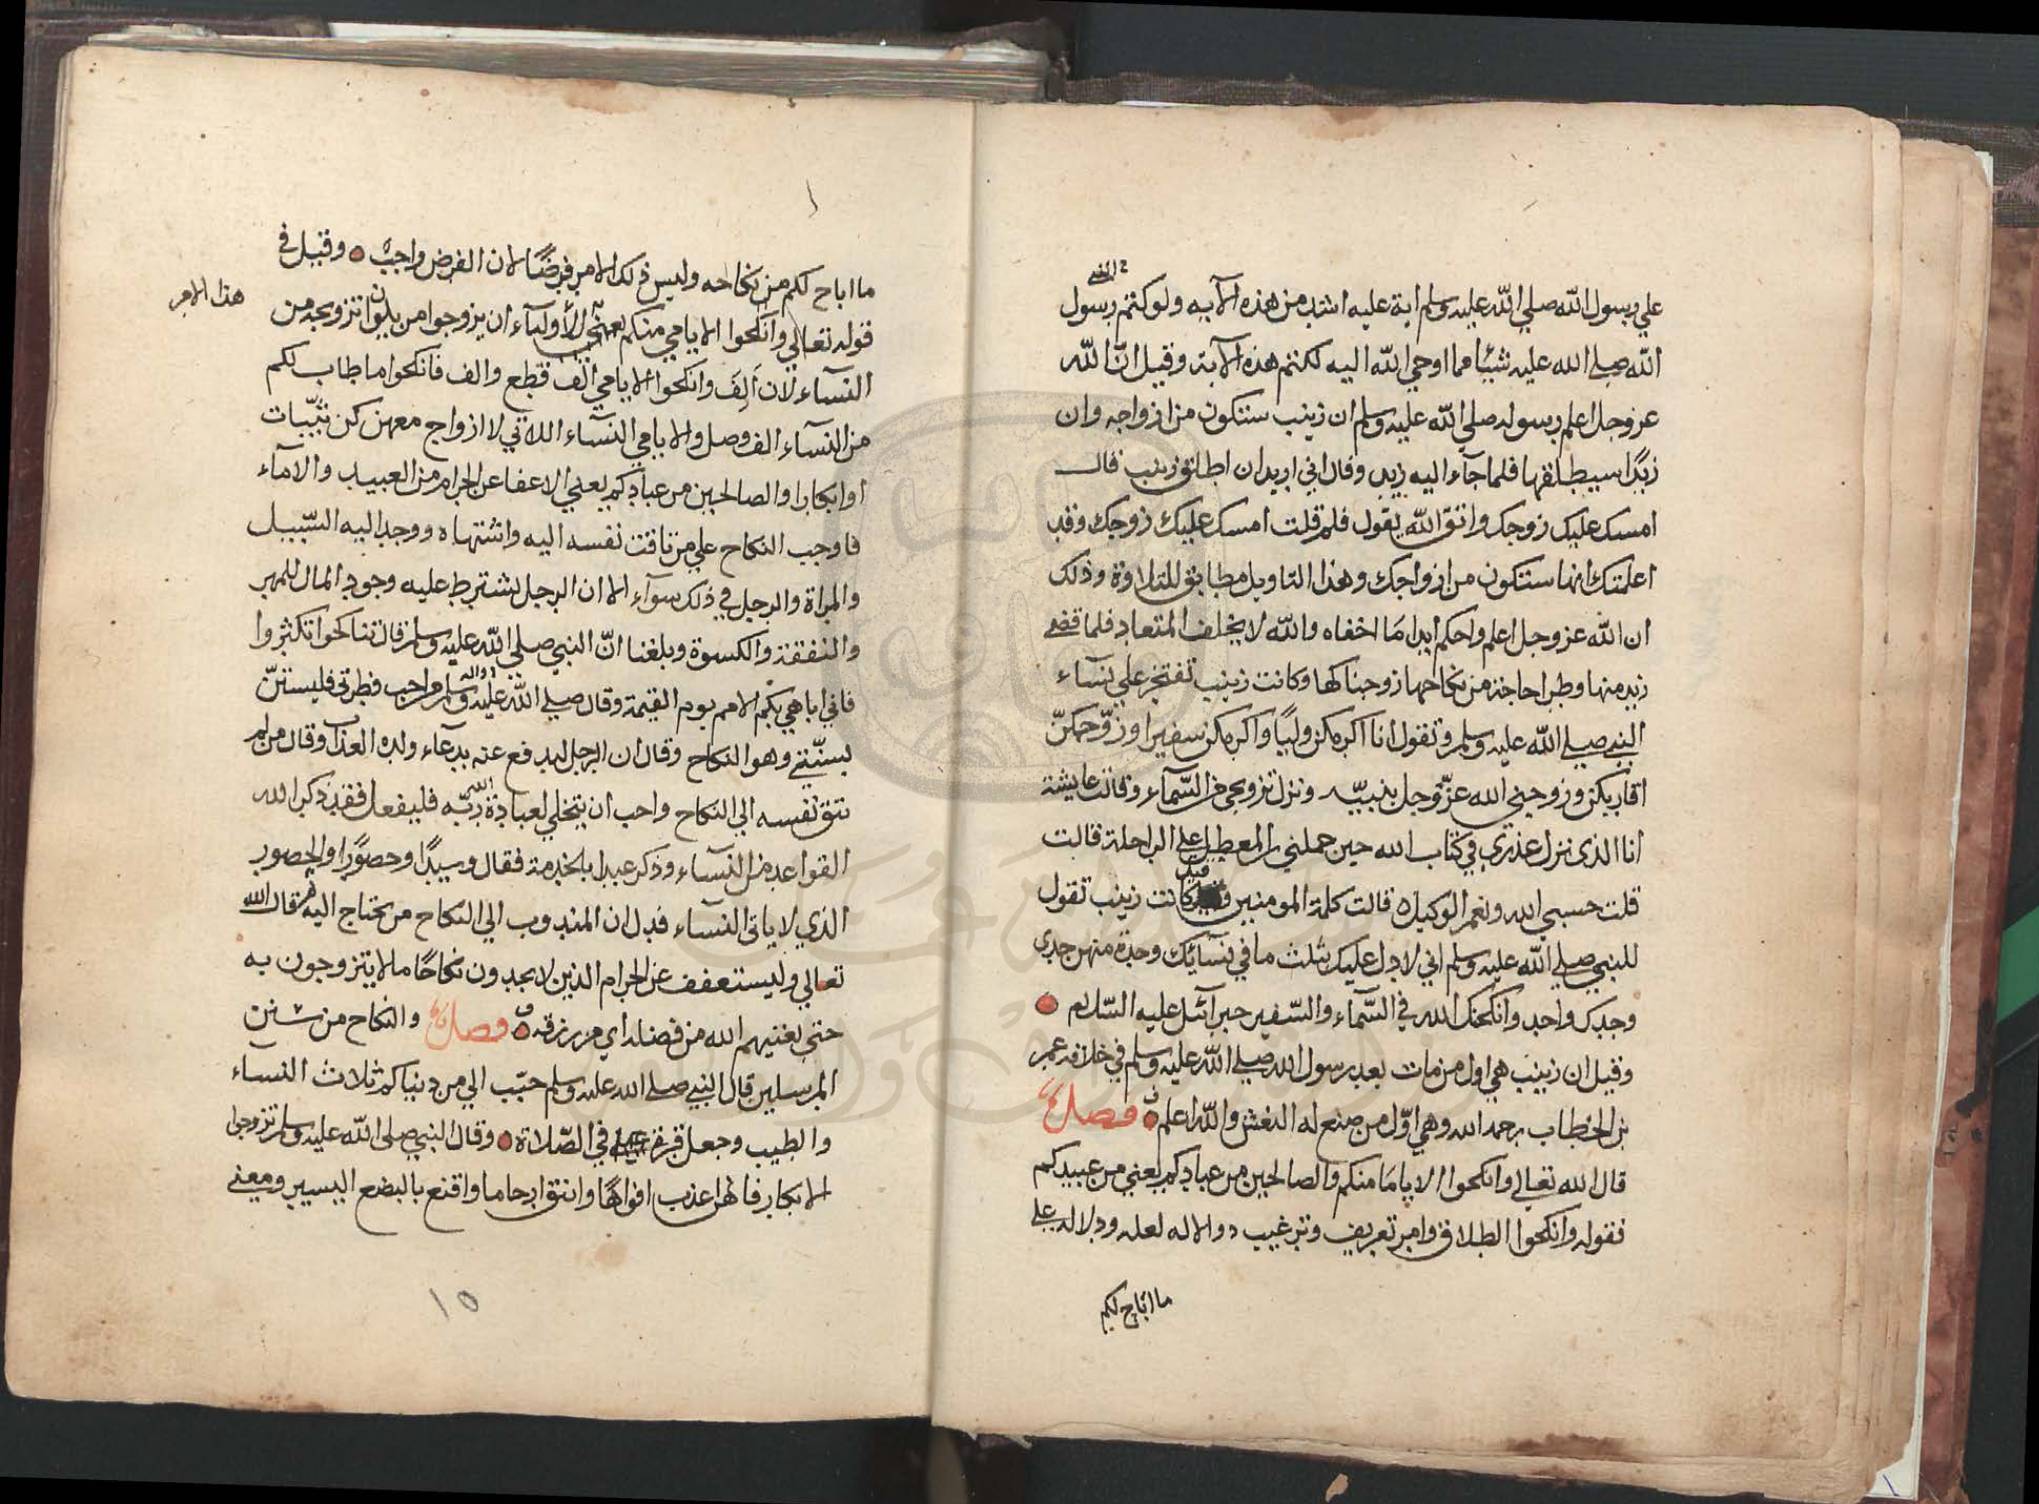 علي رسول الله صلي الله عليه وسلم اية عليه اشد من هذه الآيه ولو كتم رسول
الله صلى الله عليه شيئا مما اوحي الله اليه لكتم هذه الآية وقيل انّ الله
عز وجل اعلم رسوله صلي الله عليه وسلم ان زينب ستكون من ازواجه وان
زيدًا سيطلقها فلما جآء اليه زيد وقال اني اريد ان اطلق زينب قال
امسك عليك زوجك واتق الله يقول فلم قلت امسك عليك زوجك وقد
اعلمتك انها ستكون من ازواجك وهذا التاويل مطابق للتلاوة وذلك
ان الله عز وجل اعلم واحكم ابدا مَا اخفاه والله لا يخلف المتعاد فلما قضي
زيد منها وطرا حاجة من نكاحها زوجناكها وكانت زينب تفتخر علي نسآء
النبي صلي الله عليه وسلم وتقول انا اكرمكن وليًا واكرمكن سفيرا وزوّجكنّ
اقاربكن وزوجني الله عزّ وجل بنبيّه ونزل تزويجي من السّمآء وقالت عايشة
انا الذي نزل عذري في كتاب الله حين حملني بن المعطل علي الراحلة قالت
قلت حسبي الله ونعم الوكيل ٥ قالت كلمة المومنين وقيل كانت زينب تقول
للنبي صلي الله عليه وسلم اني لادل عليك بثلث ما في نسآئك وحدة منهن جدي
وجدك واحد وانكحنك الله في السّمآء والسّفير جبرآئل عليه السّلام
وقيل ان زينب هي اول من مات بعد رسول الله صلي الله عليه وسلم في خلافة عمر
بن الخطاب رحمه الله وهي اوّل من صنع له النعش والله اعلم فصل
قال الله تعالي وانكحوا الايامَا منكم والصالحين من عبادكم يعني من عبيدكم
فقوله وانكحوا الطلاق وامر تعريف وترغيب ودلاله علي
ما اباح لكم
ما اباح لكم من نكاحه وليس ذلك الامر فرضًا لان الفرض واجب وقيل في
هذا الامر
قوله تعالي وانكحوا الايامي منكم للأوليآء ان يزوجوا من يلون تزويجه من
النسآء لان اَلِفَ وانكحوا الايامي الف قطع والف فانكحوا ما طاب لكم
من النسآء الف وصل والايامي النسآء اللاتي لا ازواج معهن كن ثيّبات
او ابكارا والصالحين من عبادكم يعني الاعفا عن الحرام من العبيد والامآء
فاوجب النكاح علي من تاقت نفسه اليه واشتهاه ووجد اليه السّبيل
والمراة والرجل في ذلك سوآء الا ان الرجل يشترط عليه وجود المال للمهر
والنفقة والكسوة وبلغنا انّ النبي صلي الله عليه وسلم قال تناكحوا تكثروا
فاني اباهي بكم الامم يوم القيمة وقال صلي الله عليه واله وسلم من احب فطرتي فليستنّ
بسنّتي وهو النكاح وقال ان الرجل ليدفع عنه بدعآء ولده العذاب وقال من لم
تتق نفسه الي النكاح واحب ان يتخلي لعبادة الله ربّه فليفعل فقد ذكر الله
القواعد من النسآء وذكر عبدا بالخدمة فقال وسيدًا وحصوًرا والحصور
الذي لا ياتي النسآء فدل ان المندوب الي النكاح من يحتاج اليه قال الله
تعالي وليستعفف عن الحرام الذين لا يجدون نكاحًا ما لا يتزوجون به
حتي يغنيهم الله من فضله اي من رزقه فصل والنكاح من سنن
المرسلين قال النبي صلي الله عليه وسلم حبّب الي من دنياكم ثلاث النسآء
والطيب وجعل قرة عيني في الصّلاة وقال النبي صلي الله عليه وسلم تزوجوا
الابكار فانهن اعذب افواهًا وانتق ارحاما واقنع بالبضع اليسير ومعني
١٥